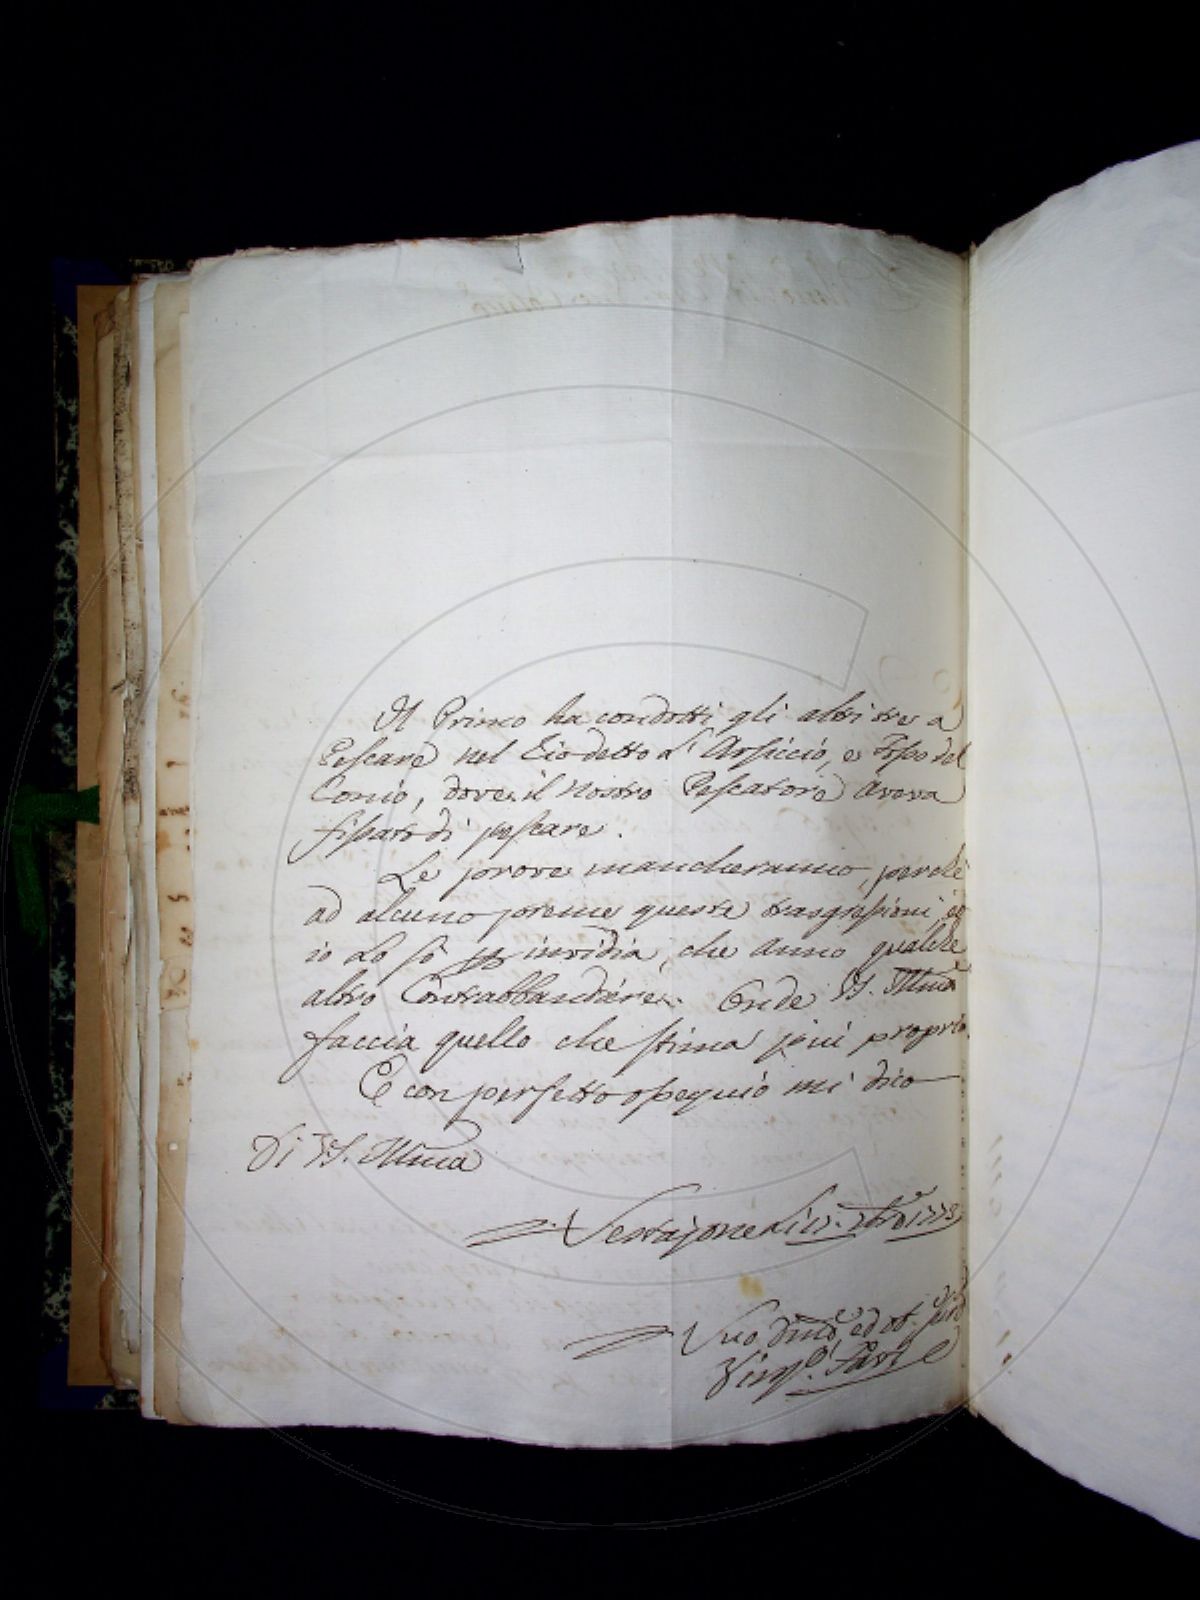 Il Primo ha condotti gli altri tre a
Pescare nel Rio detto L' Arsiccio, e Fosso del
Conio, dove il nostro Pescatore aveva
fissato di pescare.
Le prove mancheranno, perchè
ad alcuno preme queste trasgressioni, ed
io Lo sò per invidia, che anno qualche
altro Contrabbandiere. Onde VS. Illma
faccia quello che stima più proprio.
E con perfetto ossequio mi dico
Di VS. Illma
li 17. 7bre 1773
Suo ed ob.